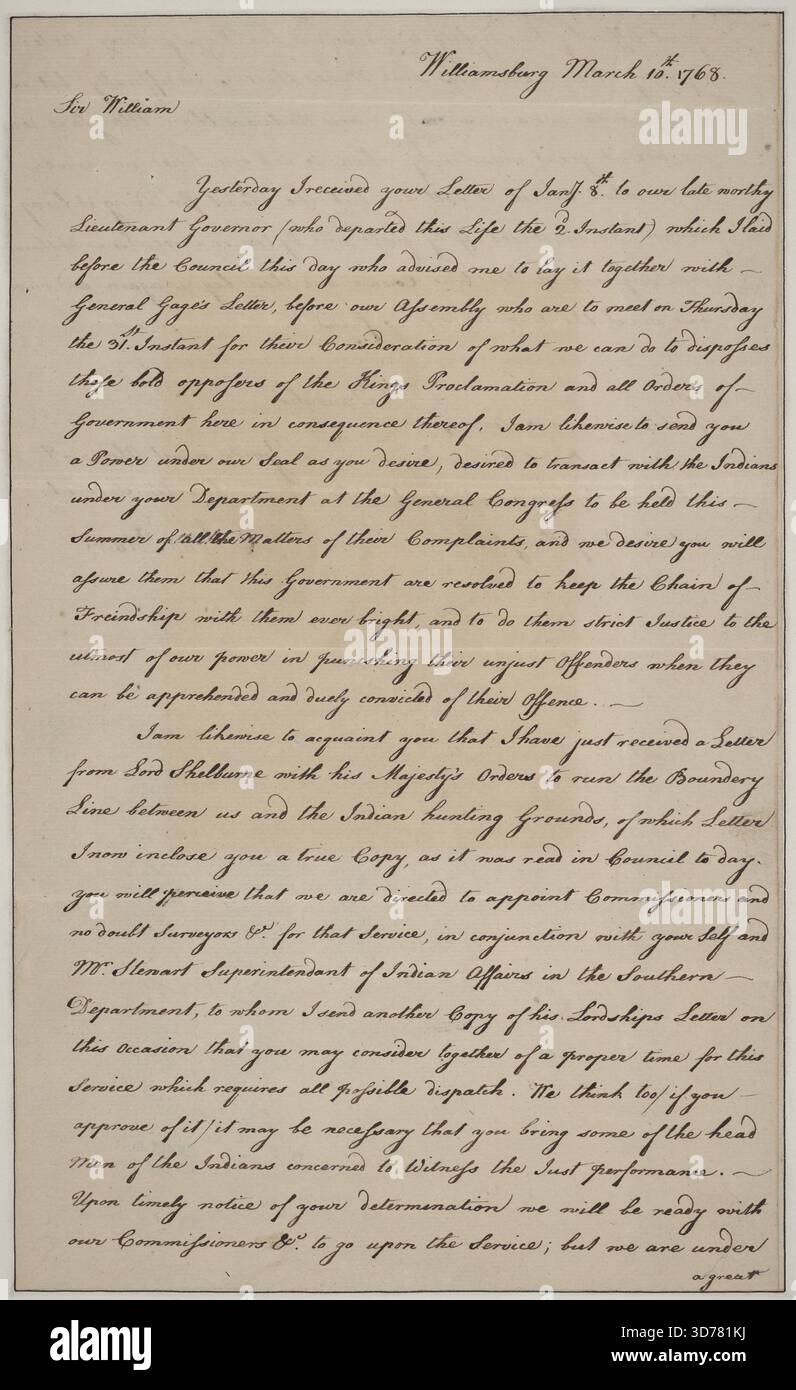 Williamsburg March 10.th 1768.
Sir William
Yesterday I received your Letter of Jany. 8th. to our late worthy
Lieutenant Governor (who departed this Life the 2d. Instant) which I laid
before the Council this day who advised me to lay it together with —
General Gage's Letter, before our Assembly who are to meet on Thursday
the 31st. Instant for their Consideration of what we can do to disposses
those bold opposers of the Kings Proclamation and all Orders of —
Government here in consequence thereof. I am likewise to send you
a Power under our Seal as you desire, desired to transact with the Indians
under your Department at the General Congress to be held this —
Summer of all the Matters of their Complaints, and we desire you will
assure them that this Government are resolved to keep the Chain of —
Freindship with them ever bright, and to do them strict Justice to the
utmost of our power in punishing their unjust Offenders when they
can be apprehended and duely convicted of their Offence. —
I am likewise to acquaint you that I have just received a Letter
from Lord Shelburne with his Majesty's Orders to run the Boundery
Line between us and the Indian hunting Grounds, of which Letter
I now inclose you a true Copy, as it was read in Council to day.
you will perceive that we are directed to appoint Commissioners and
no doubt Surveyors &c. for that Service, in conjunction with your Self and
Mr. Stewart Superintendant of Indian Affairs in the Southern —
Department, to whom I send another Copy of his Lordships Letter on
this Occasion that you may consider together of a proper time for this
Service which requires all possible dispatch. We think too/ if you —
approve of it/ it may be necessary that you bring some of the head
Men of the Indians concerned to Witness the Just performance. —
Upon timely notice of your determination we will be ready with
our Commissioners &c. to go upon the Service; but we are under
a great
alamy
alamy
Image ID: 3D781KJ
www.alamy.com